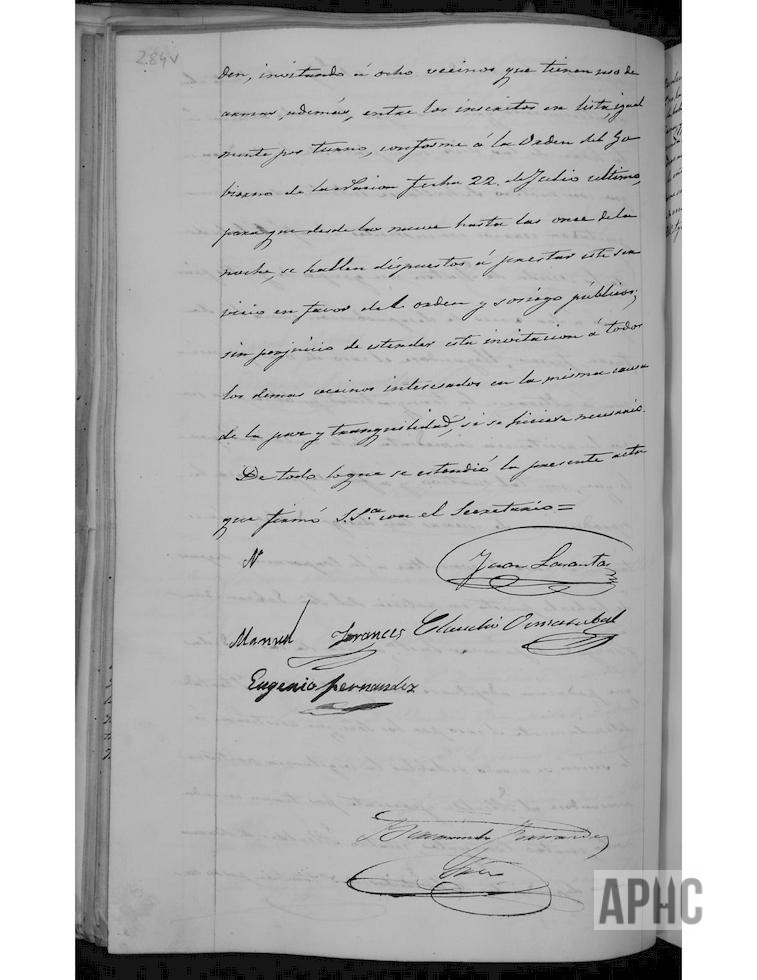 284v
den, invitando á ocho vecinos que tienen uso de
armas, además, entre los inscritos en lista, igual
mente por turno, conforme á la Orden del Go
bierno de la Nacion fecha 22. de Julio ultimo,
para que desde las nueve hasta las once de la
noche, se hallen dispuestos á prestar este ser
vicio en favor del orden y sosiego públicos;
sin perjuicio de estender esta invitacion á todos
los demas vecinos interesados en la misma causa
de la paz y tranquilidad, si se hiciese necesario.
De todo lo que se estendió la presente acta
que firmó S.Sª con el Secretario =
Juan
Manuel Frances Claudio
Eugenio Fernandez
APHC